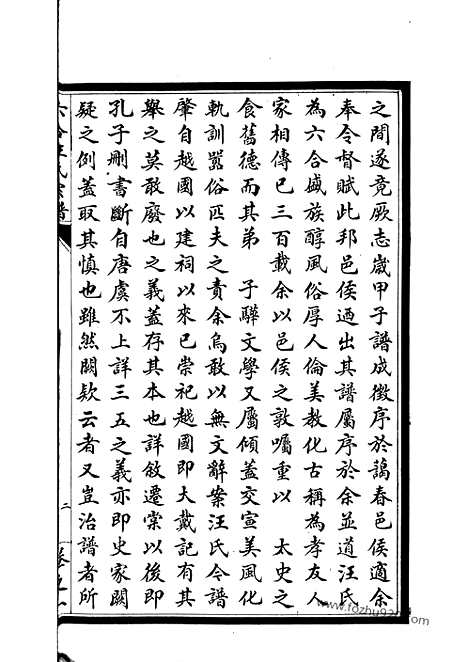 之間遂竟厥志歲甲子譜成徵序於藹春邑侯適余
奉令督賦此邦邑侯迺出其譜屬序於余並道汪氏
為六合盛族醇風俗厚人倫美教化古稱為孝友人
家相傳已三百載余以邑侯之敦囑重以　太史之
食舊德而其弟　子驊文學又屬傾蓋交宣美風化
軌訓嚚俗匹夫之責余烏敢以無文辭案汪氏今譜
肇自越國以建祠以來已崇祀越國即大戴記有其
舉之莫敢廢也之義蓋存其本也詳敘遷棠以後即
孔子刪書斷自唐虞不上詳三五之義亦即史家闕
疑之例蓋取其慎也雖然闕欵云者又豈治譜者所
六合汪氏宗譜
二
卷之一
www.fozhu920.com